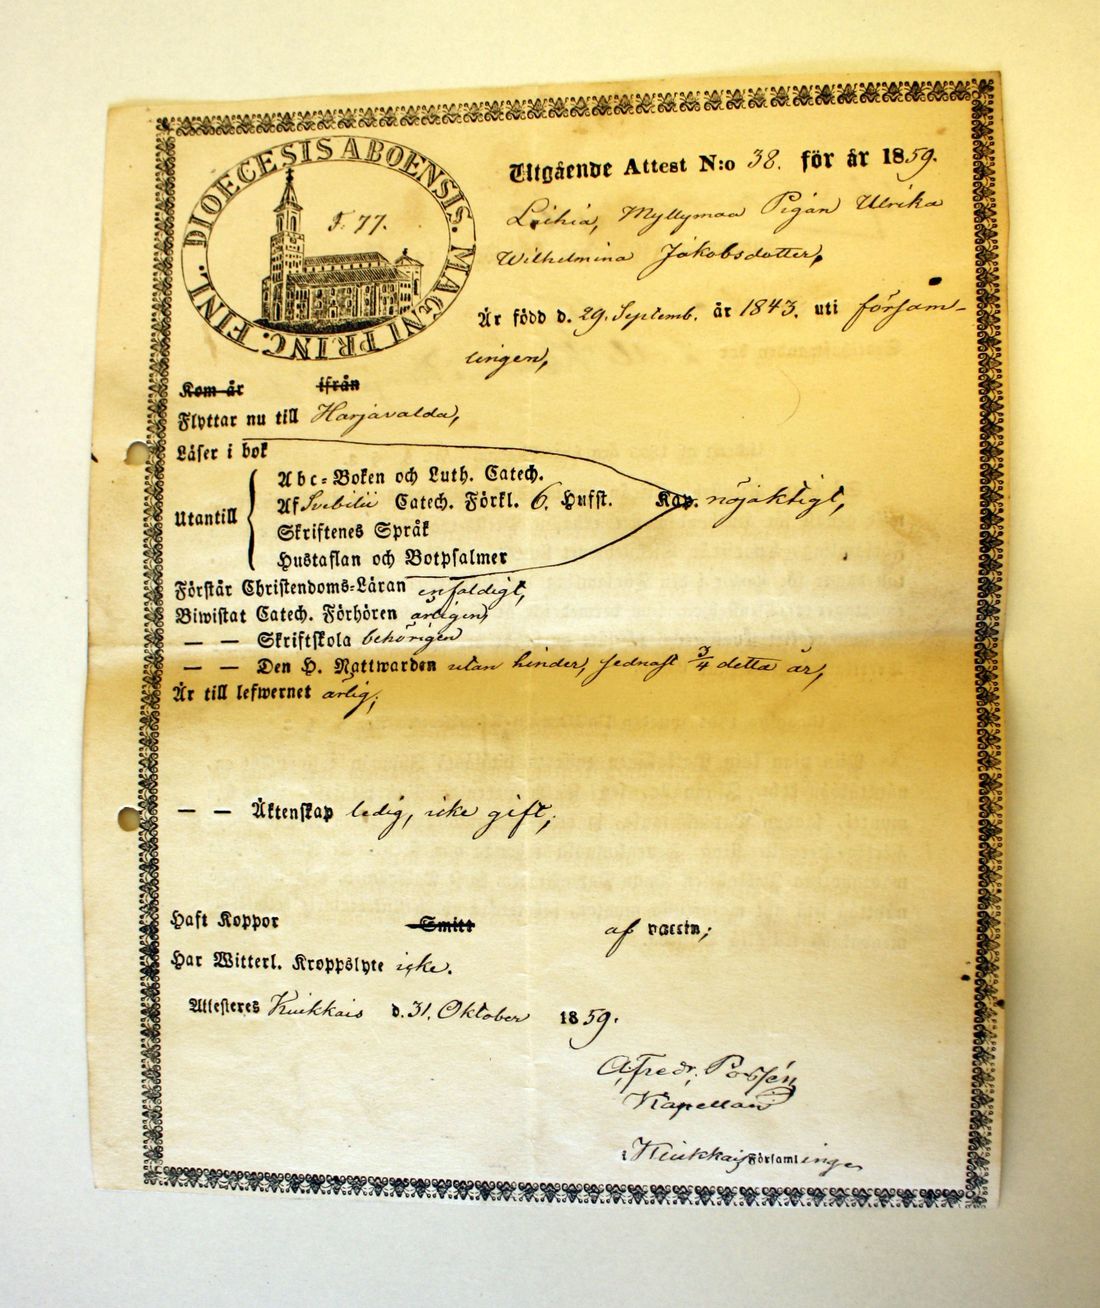 DIOECESIS ABOENSIS. MAGNI PRINC. FINL.
F. 77.
Utgående Attest N:o 38. för år 1859.
Loihia, Myllymaa Pigan Ulrika
Wilhelmina Jakobsdotter,
Är född d. 29. Septemb. år 1843. uti försam-
lingen,
Kom år ifrån
Flyttar nu till Harjavalda,
Läser i bok
Utantill
Abc-Boken och Luth. Catech.
Af Svebilii Catech. Förkl. 6. Hufst. Kap. nöjaktigt,
Skriftenes Språk
Hustaflan och Botpsalmer
Förstår Christendoms-Läran enfaldigt,
Biwistat Catech. Förhören årligen,
— — Skriftskola behörigen
— — Den H. Nattwarden utan hinder, sednast 3/4 detta år,
Är till lefwernet ärlig;
— — Äktenskap ledig, icke gift;
Haft Koppor Smitt af vaccin;
Har Witterl. Kroppslyte icke.
Attesteres Kiukkais d. 31. Oktober 1859.
Alfredr. Porssén
Kapellan
i Kiukkais Församlinge